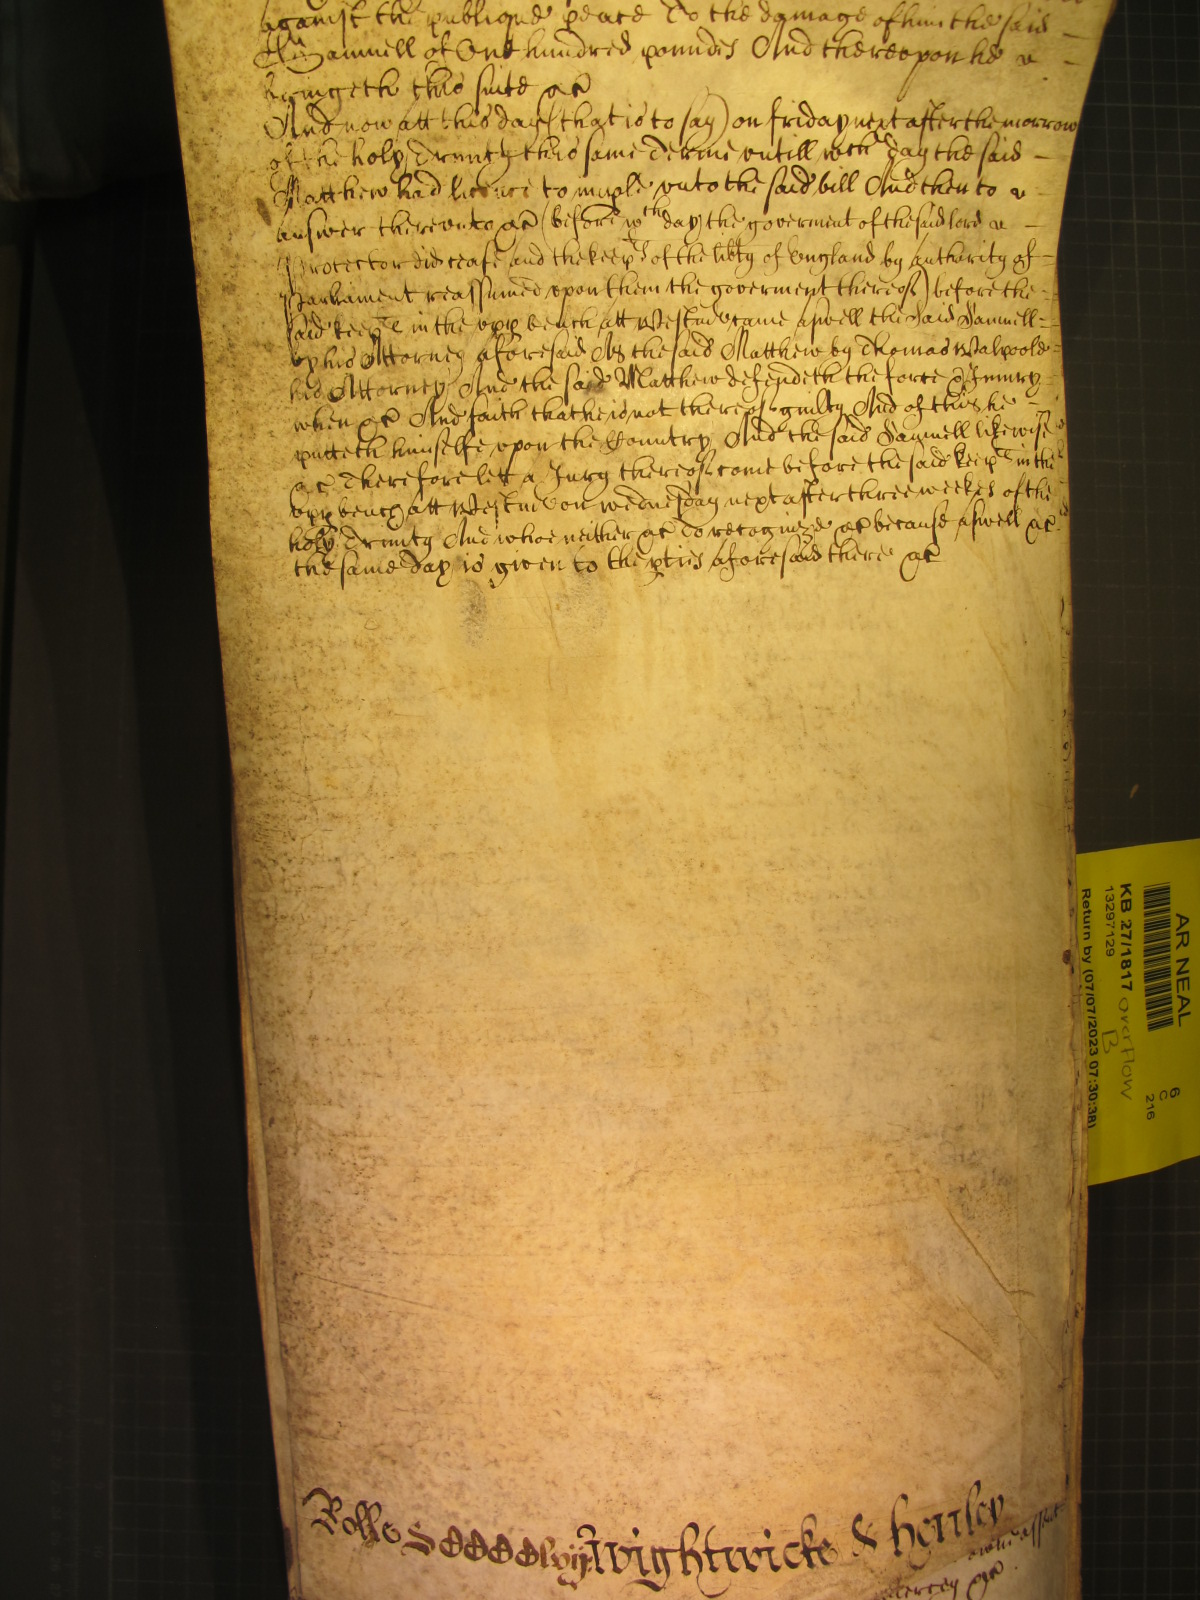 against the publique peace To the damage of him the said
Samuell of One hundred poundes And thereupon he
bringeth this suite &c
And now att this day (that is to say) on friday next after the morrow
of the holy Trinity this same Terme untill wch day the said
Matthew had licence to imple unto the said bill And then to
answer thereunto &c (before wch day the goverment of the said lord
Protector did cease and the keeprs of the libty of England by authority of
Parliament reassumed upon them the goverment thereof) before the
said keeprs in the upp bench att Westmr came aswell the said Samuell
by his Attorney aforesaid As the said Matthew by Thomas Walpoole
his Attorney And the said Matthew defendeth the force & Iniury
when &c And saith that he is not thereof guilty And of this he
putteth himselfe upon the Country And the said Samuell likewise
&c Therefore lett a Jury thereof come before the said keeprs in the
upp bench att Westmr on wednesday next after three weekes of the
holy Trinity And whoe neither &c To recognize &c because aswell &c
the same day is given to the pties aforesaid there &c
Rolle Wightwicke & Henley
AR NEAL
6
C
216
KB 27/1817 overflow
B
13297129
Return by (07/07/2023 07:30:38)